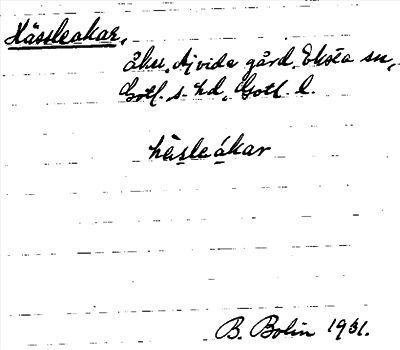 Hässleakar,
åku, Ajvide gård, Eksta sn,
Gotl. s. hd, Gotl. l.
hàsleákar
B. Bolin 1931.